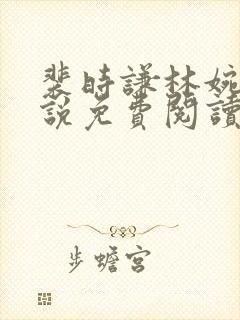 裴時謙林婉
說免費閱讀
步蟾宮